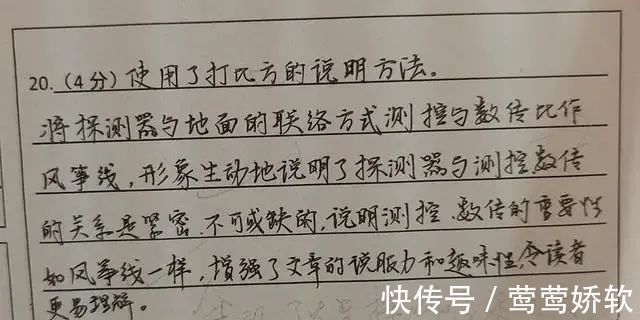 20.（4分）使用了打比方的说明方法。
将探测器与地面的联络方式测控与数传比作
风筝线，形象生动地说明了探测器与测控数传
的关系是紧密、不可或缺的，说明测控、数传的重要性
如风筝线一样，增强了文章的说服力和趣味性，令读者
更易理解。
快传号／莺莺娇软